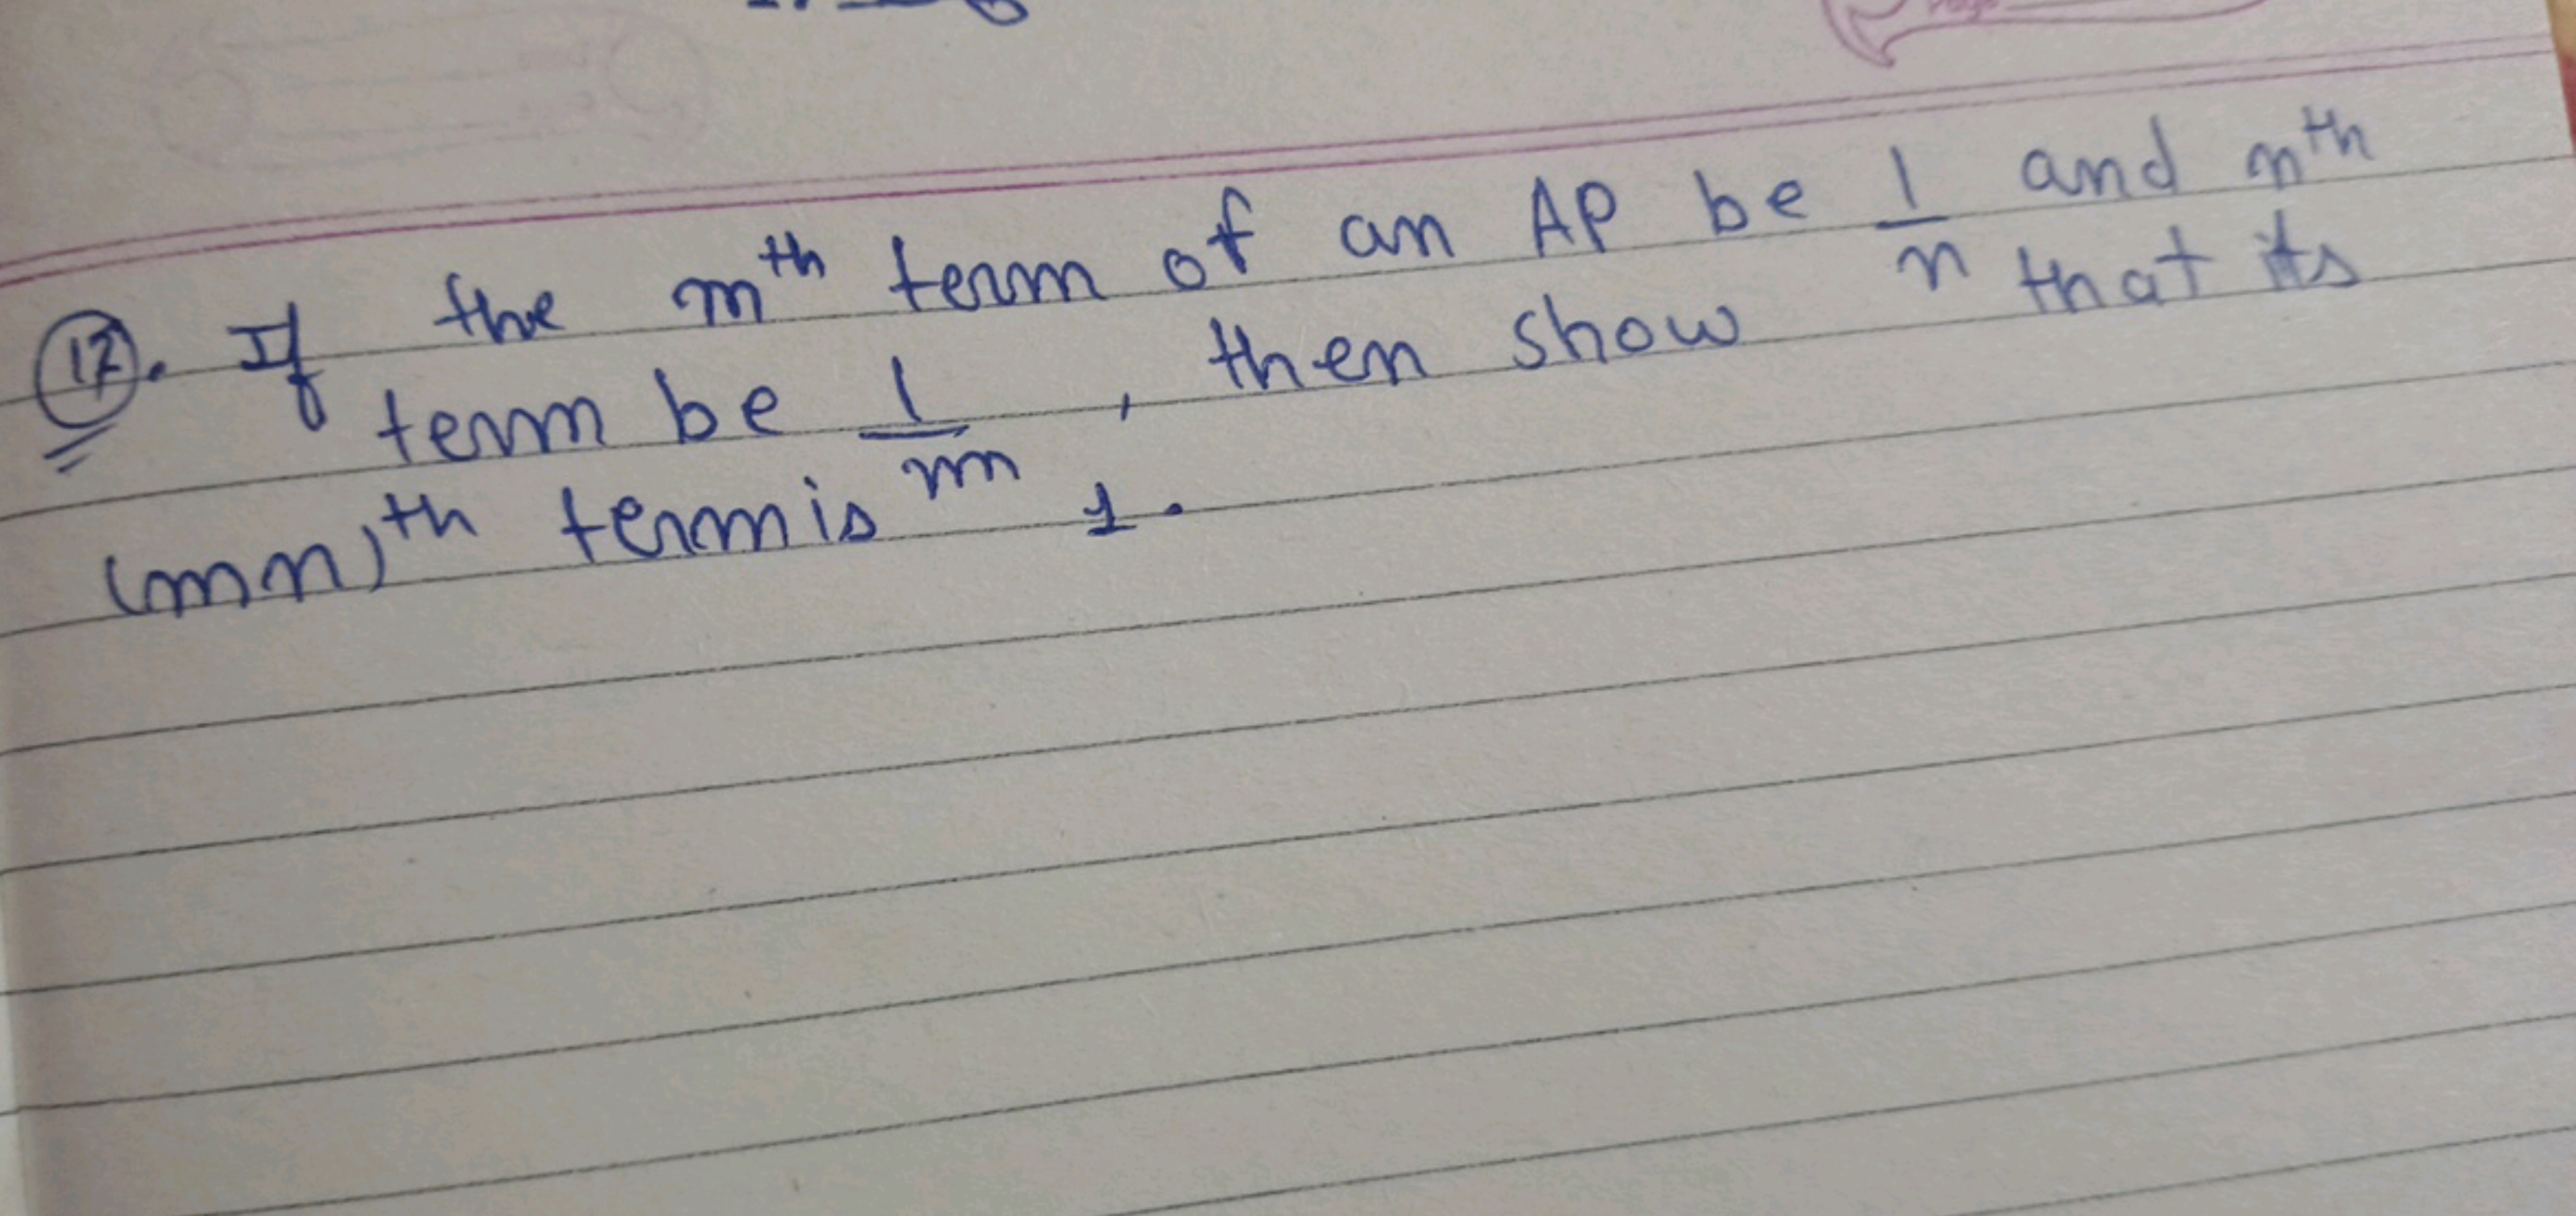 (17). If the mᵗʰ term of an AP be 1/n and nᵗʰ
term be 1/m , then show that its
(mn)ᵗʰ term is 1.